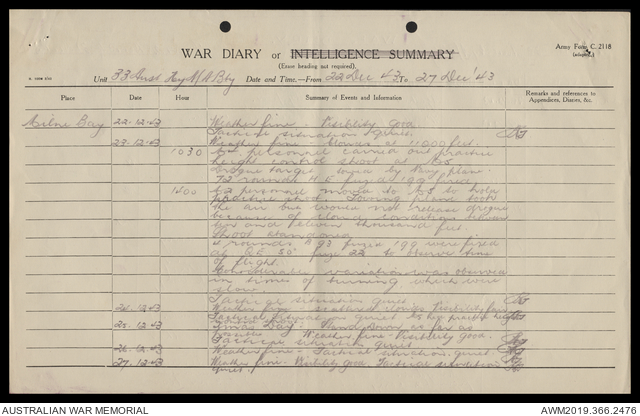 WAR DIARY or INTELLIGENCE SUMMARY
Army Form C. 2118
(Erase heading not required).
Unit 33 Aust Hvy A A Bty Date and Time.—From 22 Dec 43 To 27 Dec '43
Place
Date
Hour
Summary of Events and Information
Remarks and references to Appendices, Diaries, &c.
Milne Bay 22.12.43 Weather fine. Visibility Good.
Tactical situation quiet.
23.12.43 Weather fine. Clouds at 11000 feet.
1030 personnel carried out practice
height control shoot at
Drogue target towed by Navy plane.
72 rounds H.E. fuze 199 fired.
1400 personnel moved to to
practice shoot. Towing plane took
the air but would not release drogue
because of cloud conditions
ten and eleven thousand feet.
Shoot abandoned.
4 rounds 93 fuze 199 were fired
at QE 50° fuze 22 to observe time
of flight.
Considerable variation was observed
in times of burning which were
slow.
Tactical situation quiet.
24.12.43 Weather fine - scattered clouds Visibility fair
Tactical situation quiet.
25.12.43 Xmas Day. Stand down as far as
possible Weather fine. Visibility good.
Tactical situation quiet.
26.12.43 Weather fine. Tactical situation quiet.
27.12.43 Weather fine. Visibility Good. Tactical situation
quiet.
AUSTRALIAN WAR MEMORIAL
AWM2019.366.2476